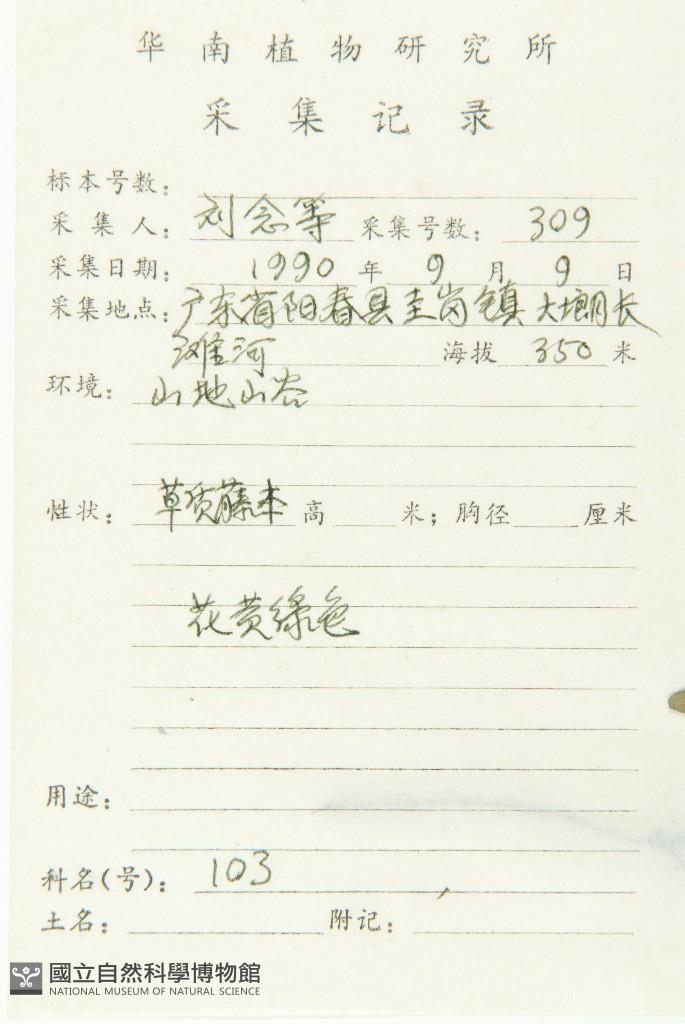 华南植物研究所
采集记录
标本号数：
采集人：刘念等 采集号数：309
采集日期：1990年9月9日
采集地点：广东省阳春县圭岗镇大塱长
滩河 海拔 350 米
环境：山地山谷
性状：草质藤本 高 米；胸径 厘米
花黄绿色
用途：
科名(号)：103
土名： 附记：
國立自然科學博物館
NATIONAL MUSEUM OF NATURAL SCIENCE